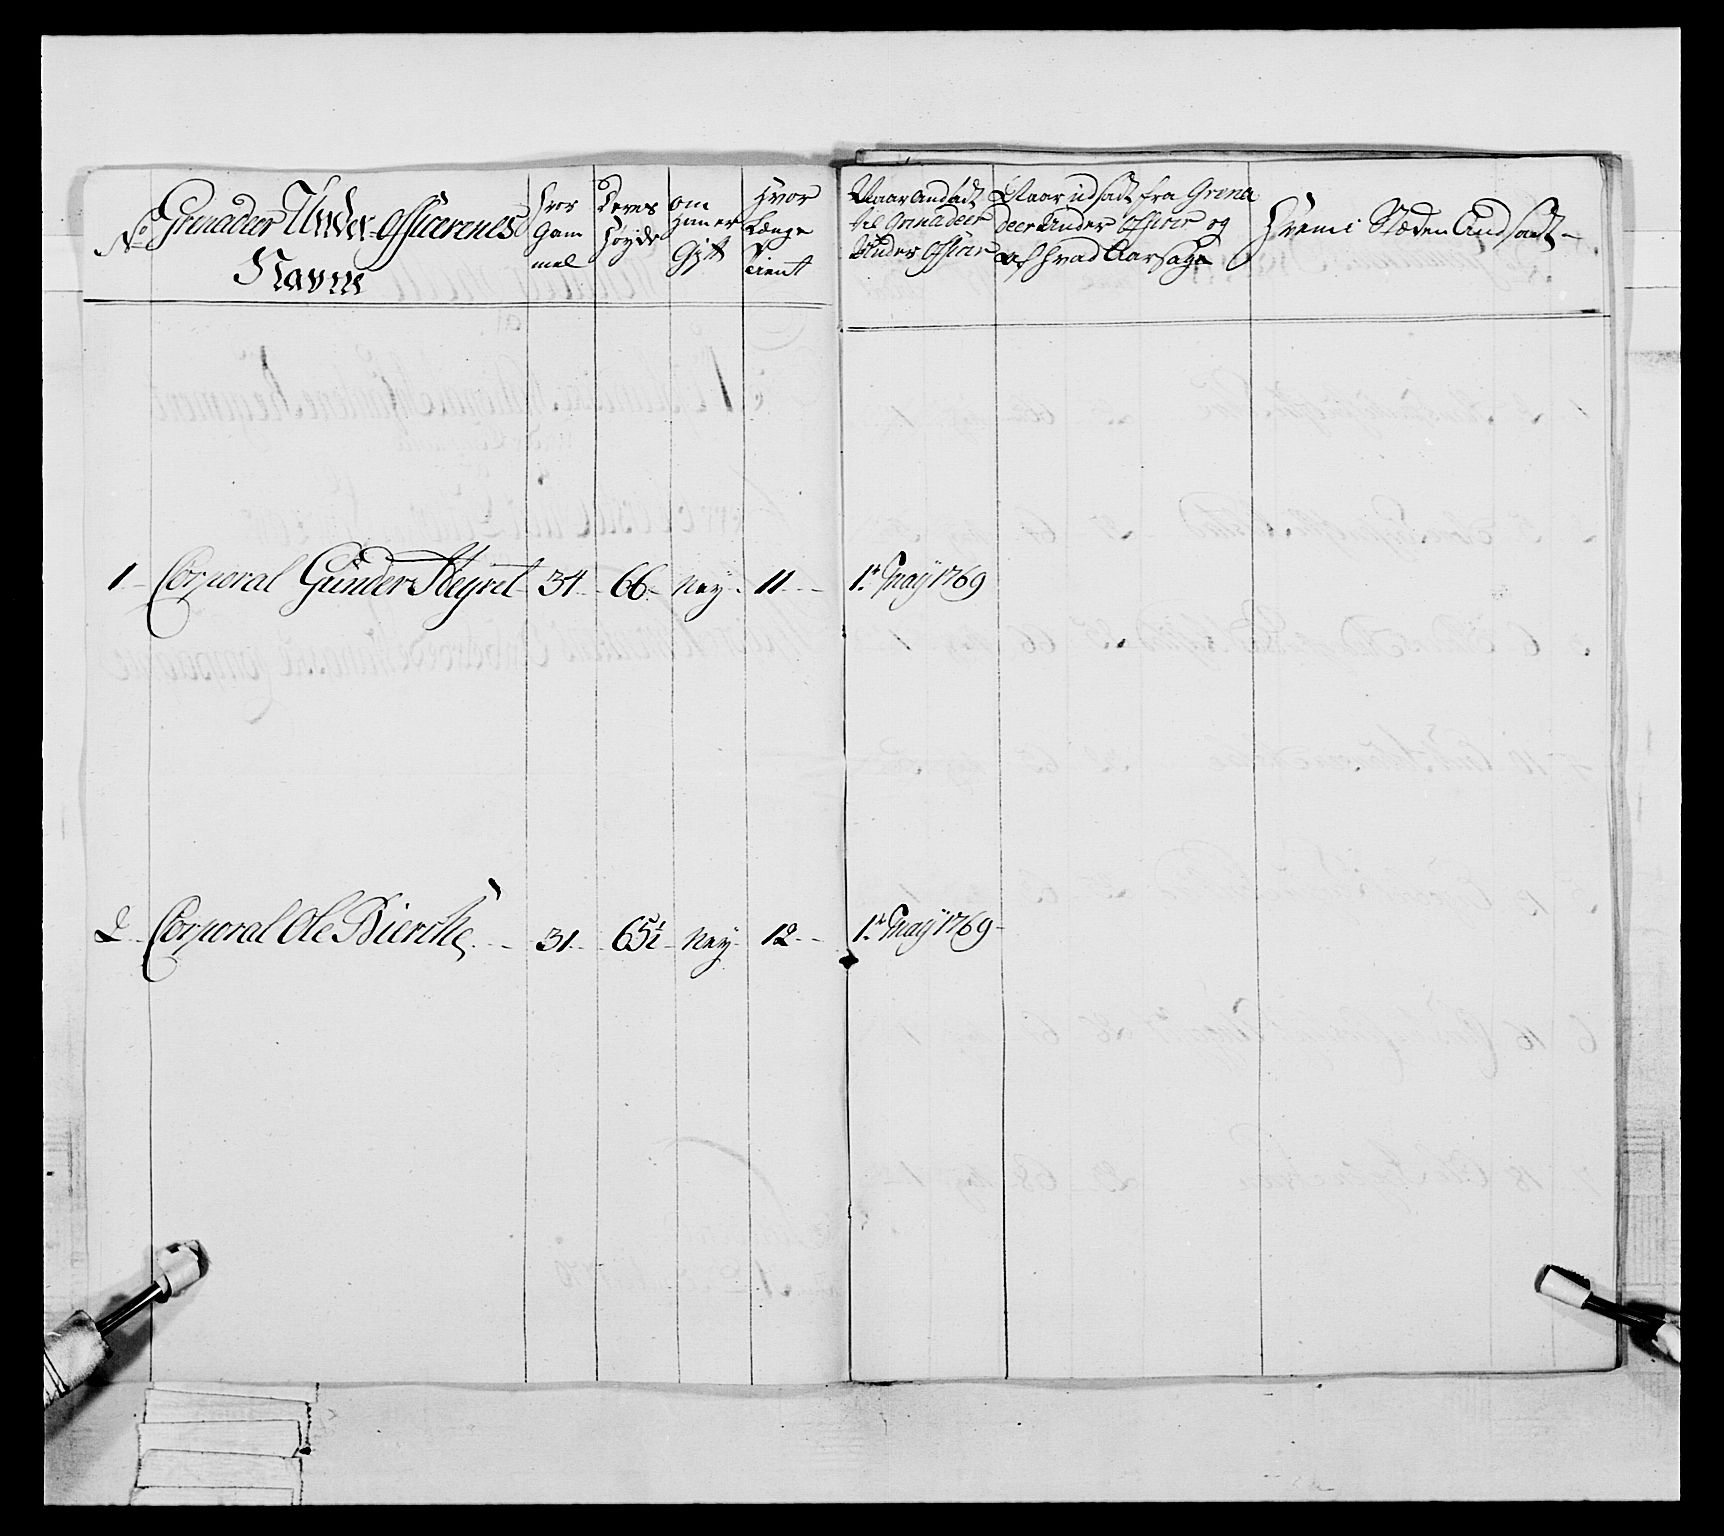 No Grenadeer Under-officerenes
Navne
Hvor
Gam
mel
Deres
Høyde
om
Hun er
Gift
Hvor
Længe
Tient
Naar andsadt
til Grenadeer
Under Officer
Naar udsadt fra Grena
deer Under Officer og
af hvad Aarsage
Hvem i Stæden Andsadt
1 Corporal Gunder 34 66 Ney 11 1te May 1769
2 Corporal Ole Biercke 31 65½ Ney 12 1te May 1769